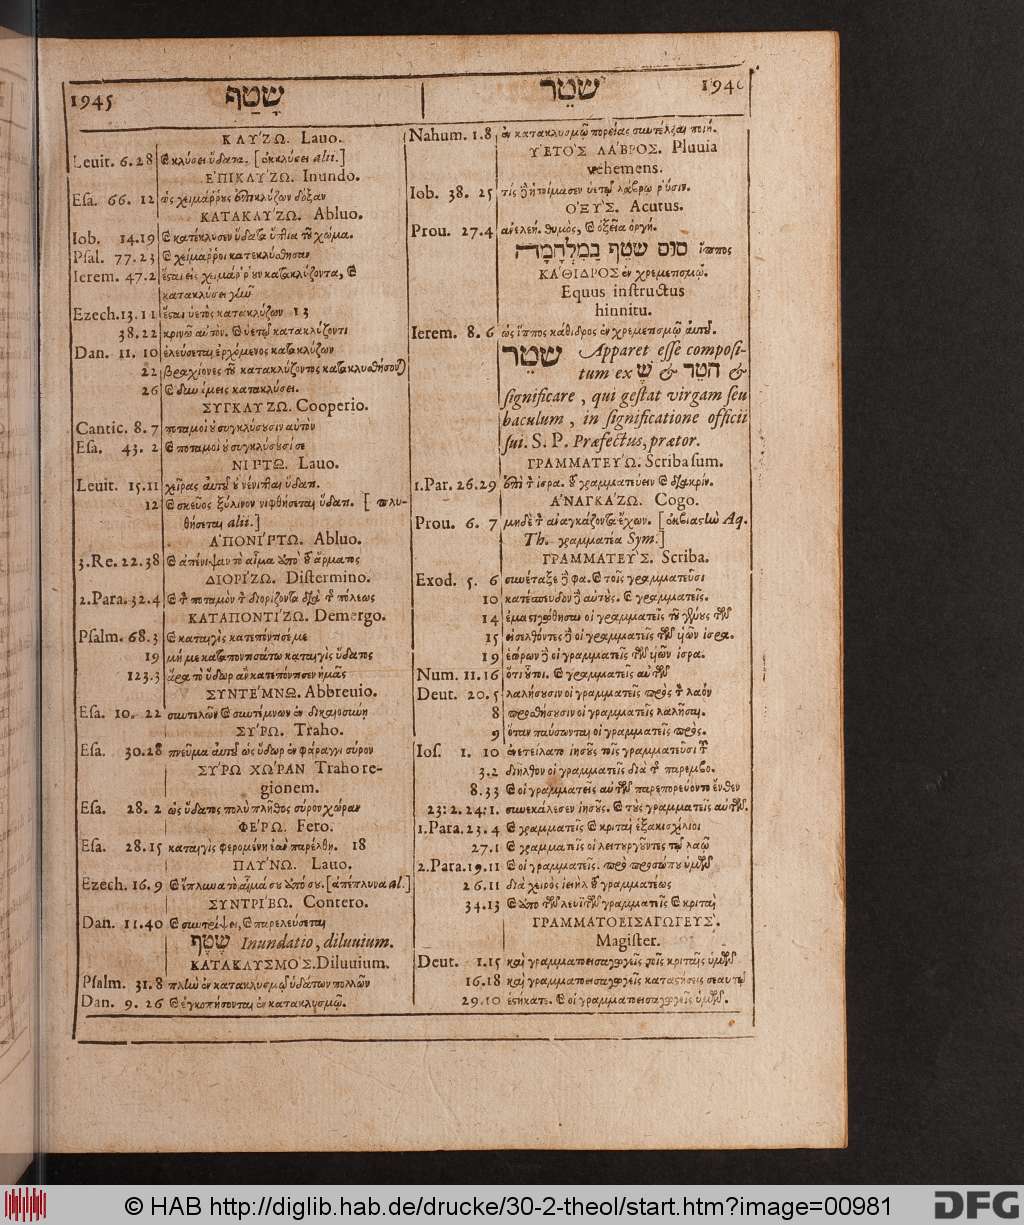 1945 שָׁטַף
שֹׁטֵר 194
ΚΛΥΖΩ. Lauo.
Leuit. 6.28 κλύσει ὕδατι. [ἐκκλύσει alii.]
ἘΠΙΚΛΥΖΩ. Inundo.
Esa. 66. 12 ὡς χειμάρρους ἐπικλύζων δόξαν
ΚΑΤΑΚΛΥΖΩ. Abluo.
Iob. 14.19
Psal. 77.23 χείμαρροι κατεκλύσθησαν
Ierem. 47.2
κατακλύσει γῆν
Ezech. 13.11 ἔσται ὑετὸς κατακλύζων 13
38.22 κρινῶ αὐτὸν. ὑετῷ κατακλύζοντι
Dan. 11. 10 ἐλεύσεται ἐρχόμενος κατακλύζων
22 βραχίονες τοῦ κατακλύζοντος κατακλυσθήσον)
26 δυνάμεις κατακλύσει.
ΣΥΓΚΛΥΖΩ. Cooperio.
Cantic. 8. 7 ποταμοὶ οὐ συγκλύσουσιν αὐτὸν
Esa. 43. 2 ποταμοὶ οὐ συγκλύσουσί σε
ΝΙΠΤΩ. Lauo.
Leuit. 15.11 χεῖρας αὐτοῦ οὐ νένιπται ὕδατι.
12 σκεῦος ξύλινον νιφθήσεται ὕδατι. [πλυ-
θήσεται alii.]
ἈΠΟΝΙΠΤΩ. Abluo.
3.Re. 22.38 ἀπένιψαν τὸ αἷμα ἀπὸ τοῦ ἅρματος
ΔΙΟΡΙΖΩ. Distermino.
2.Para. 32.4 τὸν ποταμὸν τὸν διορίζοντα διὰ τῆς πόλεως
ΚΑΤΑΠΟΝΤΙΖΩ. Demergo.
Psalm. 68.3 καταιγὶς κατεπόντισέ με
19 μή με καταποντισάτω καταιγὶς ὕδατος
123.3 ἄρα τὸ ὕδωρ ἂν κατεπόντισεν ἡμᾶς
ΣΥΝΤΕΜΝΩ. Abbreuio.
Esa. 10. 22 συντελῶν συντέμνων ἐν δικαιοσύνῃ
ΣΥΡΩ. Traho.
Esa. 30.28 πνεῦμα αὐτοῦ ὡς ὕδωρ ἐν φάραγγι σύρον
ΣΥΡΩ ΧΩΡΑΝ Traho re-
gionem.
Esa. 28. 2 ὡς ὕδατος πολὺ πλῆθος σύρον χώραν
ΦΕΡΩ. Fero.
Esa. 28.15 καταιγὶς φερομένη ἐὰν παρέλθῃ. 18
ΠΛΥΝΩ. Lauo.
Ezech. 16. 9 ἔπλυνα τὸ αἷμά σου ἀπό σου. [ἀπέπλυνα al.]
ΣΥΝΤΡΙΒΩ. Contero.
Dan. 11.40 συντρίψει, παρελεύσεται
שֶׁטֶף Inundatio, diluuium.
ΚΑΤΑΚΛΥΣΜΟΣ. Diluuium.
Psalm. 31.8 πλὴν ἐν κατακλυσμῷ ὑδάτων πολλῶν
Dan. 9. 26 ἐγκοπήσονται ἐν κατακλυσμῷ.
Nahum. 1.8 ἐν κατακλυσμῷ πορείας συντέλειαν ποιή.
ὙΕΤΟΣ ΛΑΒΡΟΣ. Pluuia
vehemens.
Iob. 38. 25 τίς ἡτοίμασεν ὑετῷ λάβρῳ ῥύσιν.
ΟΞΥΣ. Acutus.
Prou. 27.4 ἀνελεή. θυμὸς, ὀξεῖα ὀργή.
סוּס שֹׁטֵף בַּמִּלְחָמָה ἵππος
ΚΑΘΙΔΡΟΣ ἐν χρεμετισμῷ.
Equus instructus
hinnitu.
Ierem. 8. 6 ὡς ἵππος κάθιδρος ἐν χρεμετισμῷ αὐτοῦ.
שֹׁטֵר Apparet esse composi-
tum ex שֶׁ & חֹטֵר &
significare, qui gestat virgam seu
baculum, in significatione officii
sui. S. P. Præfectus, prætor.
ΓΡΑΜΜΑΤΕΥΩ. Scriba sum.
1.Par. 26.29 γραμματεύειν διακρίν.
ἈΝΑΓΚΑΖΩ. Cogo.
Prou. 6. 7 μηδὲ τὸν ἀναγκάζοντα ἔχων. [ Aq.
Th. γραμματέα Sym.]
ΓΡΑΜΜΑΤΕΥΣ. Scriba.
Exod. 5. 6 συνέταξε φα. τοῖς γραμματεῦσι
10 κατέσπευδον αὐτούς. γραμματεῖς.
14 ἐμαστιγώθησαν οἱ γραμματεῖς τοῦ γένους τῶν
15 εἰσελθόντες οἱ γραμματεῖς τῶν υἱῶν ἰσρα.
19 ἑώρων οἱ γραμματεῖς τῶν υἱῶν ἰσρα.
Num. 11.16 ὅτι οὗτοι. γραμματεῖς αὐτῶν
Deut. 20.5 λαλήσουσιν οἱ γραμματεῖς πρὸς τὸν λαὸν
8 προσθήσουσιν οἱ γραμματεῖς λαλῆσαι.
9 ὅταν παύσωνται οἱ γραμματεῖς πρός.
Ios. 1. 10 ἐνετείλατο ἰησοῦς τοῖς γραμματεῦσι τοῦ
3.2 διῆλθον οἱ γραμματεῖς διὰ τῆς παρεμβο.
8.33 οἱ γραμματεῖς αὐτῶν παρεπορεύοντο ἔνθεν
23:2. 24:1. συνεκάλεσεν ἰησοῦς. τοὺς γραμματεῖς αὐτῶν.
1.Para. 23.4 γραμματεῖς κριταὶ ἑξακισχίλιοι
27.1 γραμματεῖς οἱ λειτουργοῦντες τῷ λαῷ
2.Para. 19.11 οἱ γραμματεῖς. πρὸ προσώπου ὑμῶν
26.11 διὰ χειρὸς ἰειὴλ τοῦ γραμματέως
34.13 ἀπὸ τῶν λευϊτῶν γραμματεῖς κριταὶ
ΓΡΑΜΜΑΤΟΕΙΣΑΓΩΓΕΥΣ.
Magister.
Deut. 1.15 καὶ γραμματοεισαγωγεῖς τοῖς κριταῖς ὑμῶν
16.18 καὶ γραμματοεισαγωγεῖς καταστήσεις σεαυτῷ
29.10 ἑστήκατε. οἱ γραμματοεισαγωγεῖς ὑμῶν.
© HAB http://diglib.hab.de/drucke/30-2-theol/start.htm?image=00981 DFG